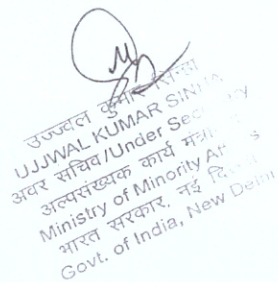 उज्ज्वल कुमार सिन्हा
UJJWAL KUMAR SINHA
अवर सचिव/Under Secretary
अल्पसंख्यक कार्य
Ministry of Minority
भारत सरकार, नई
Govt. of India, New Delhi